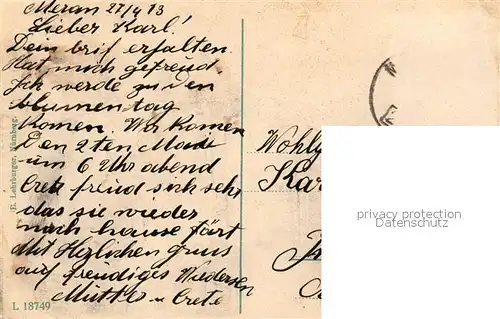 Meran 27/4 13
Lieber Karl!
Dein brif erfalten.
Hat mich gefreud.
Ich werde zu den
blumentag
Komen. Wir Komen
Den 2ten Mai
um 6 Uhr abend
Crete freud sich sehr
das sie wieder
nach hause färt
Mit Herlichen grus
auf freudiges Wiedersen
Mutter u Crete
L 18749
H. Lohrburger, Nürnberg.
Wohlg
Kar
privacy protection